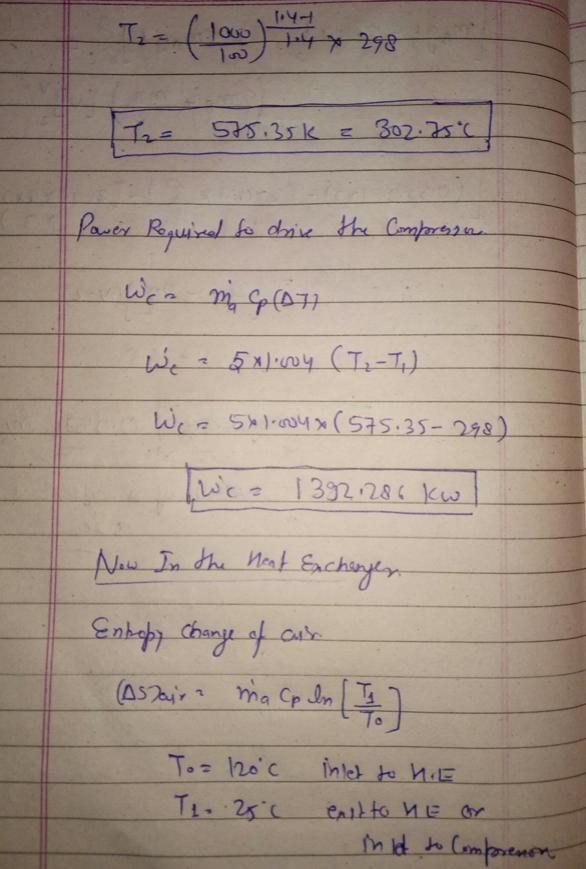 T₂ = (1000/100)^(1.4-1/1.4) × 298
T₂ = 575.35K = 302.75°C
Power Required to drive the Compressor.
Ẇc = ṁa Cp(ΔT)
Ẇc = 5×1.004 (T₂-T₁)
Ẇc = 5×1.004×(575.35-298)
Ẇc = 1392.286 Kw
Now In the Heat Exchanger.
Entropy Change of air.
(ΔS)air = ṁa Cp ln [T₁/T₀]
T₀ = 120°C inlet to H.E
T₁ = 25°C exit to HE or
inlet to Compressor